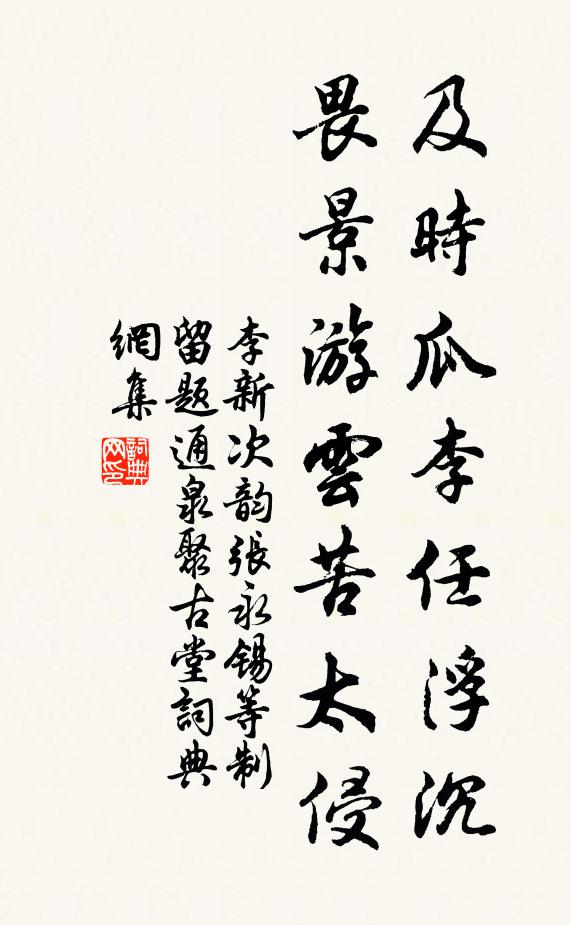 及時瓜李任浮沉
畏景游雲苦太侵
李新次韵張永錫等制
留題通泉聚古堂詞典
網集
詞典
网印